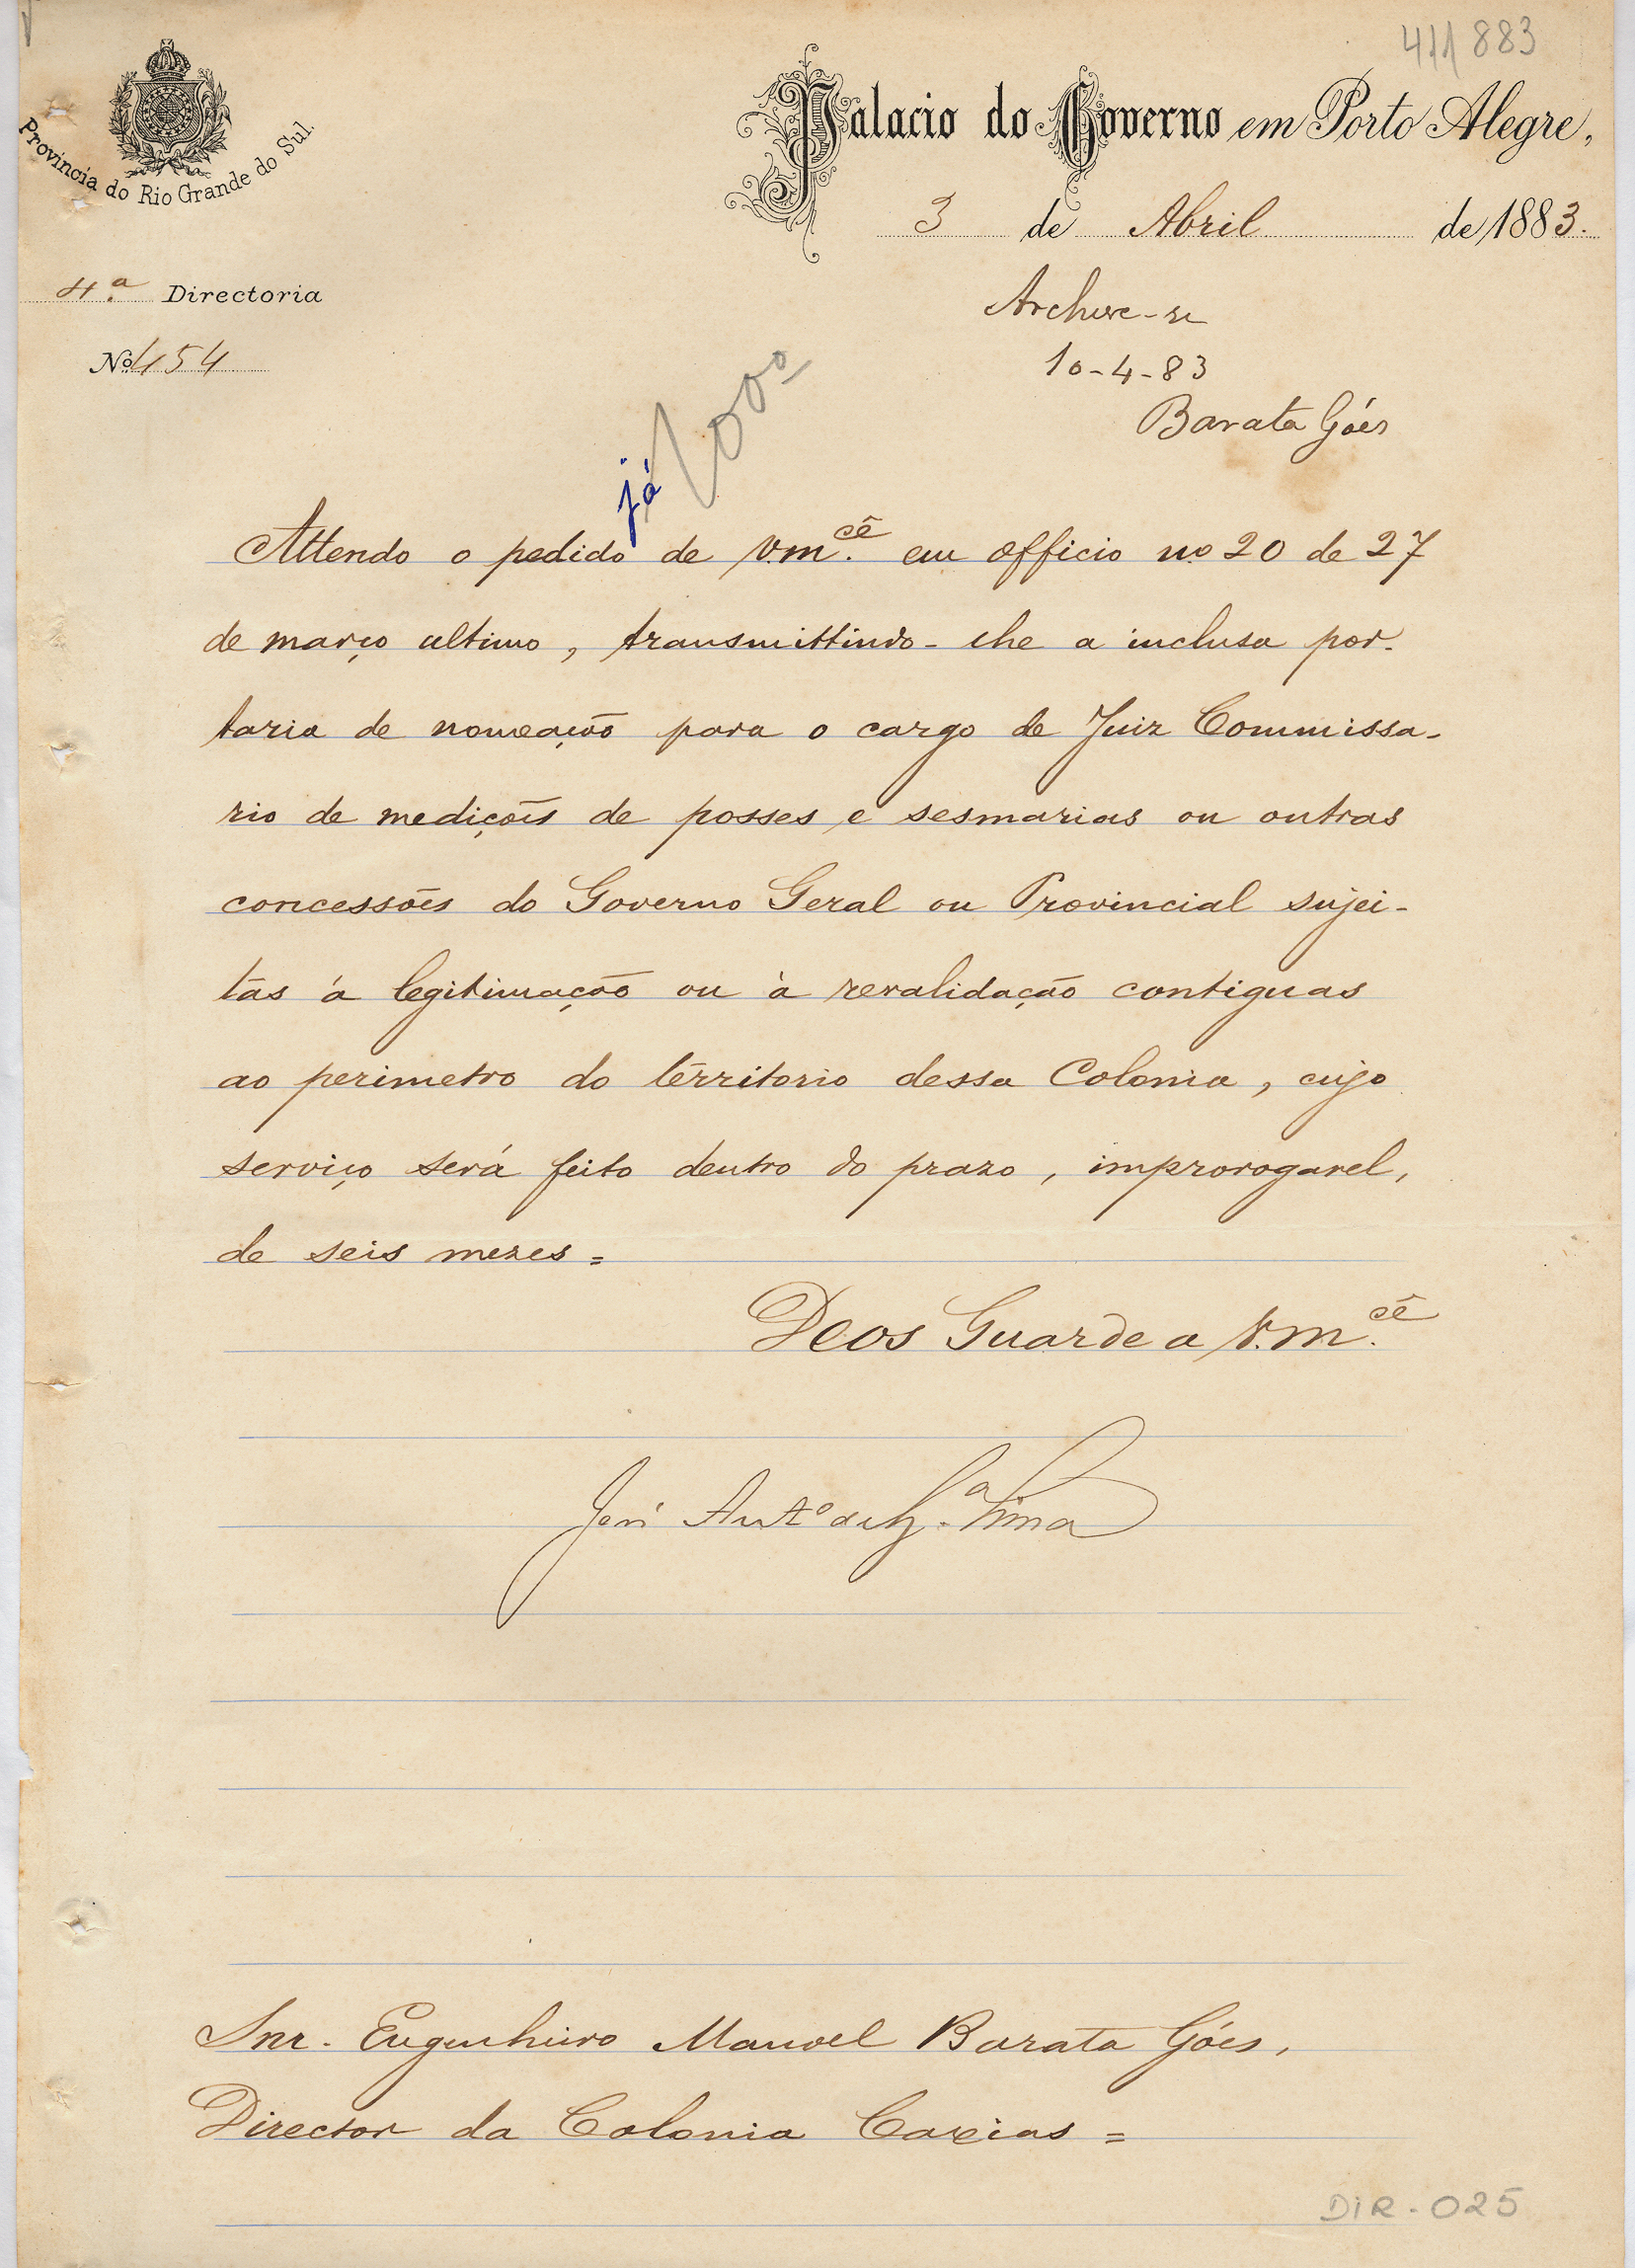 411 883
Provincia do Rio Grande do Sul.
Palacio do Governo em Porto Alegre,
3 de Abril de 1883.
4.ª Directoria
Nº 454
Archive-se
10-4-83
Barata Góes
já
Attendo o pedido de V.m.cê em officio nº 20 de 27
de março ultimo, transmittindo-lhe a inclusa por-
taria de nomeação para o cargo de Juiz Commissa-
rio de medições de posses e sesmarias ou outras
concessões do Governo Geral ou Provincial sujei-
tas á legitimação ou á revalidação contiguas
ao perimetro do territorio dessa Colonia, cujo
serviço será feito dentro do prazo, improrogavel,
de seis mezes=
Deos Guarde a V.m.cê
José Antº de Lima
Snr. Engenheiro Manoel Barata Góes,
Director da Colonia Caxias=
DIR-025